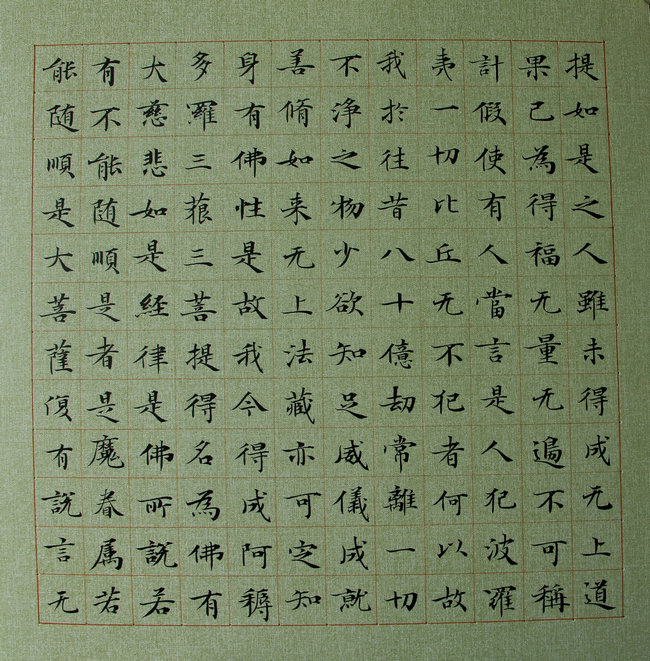 提如是之人雖未得成无上道
果已為得福无量无邊不可稱
計假使有人當言是人犯波羅
夷一切比丘无不犯者何以故
我於往昔八十億劫常離一切
不淨之物少欲知足威儀成就
善脩如来无上法藏亦可定知
身有佛性是故我今得成阿耨
多羅三藐三菩提得名為佛有
大慈悲如是經律是佛所說若
有不能随順是者是魔眷属若
能随順是大菩薩復有說言无